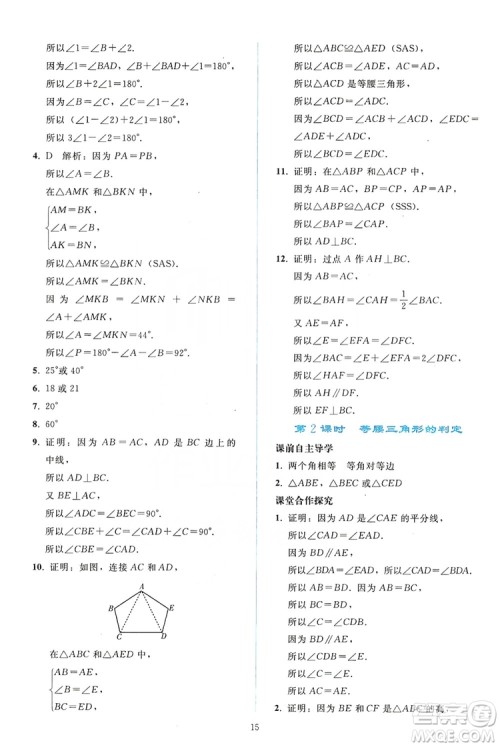 所以∠1=∠B+∠2.
因为∠1=∠BAD,∠B+∠BAD+∠2=180°,
所以∠B+2∠1=180°.
所以(∠1-∠2)+2∠1=180°.
所以3∠1-∠2=180°.
4. D 解析:因为PA=PB,
所以∠A=∠B.
在△AMK和△BKN中,
AM=BK,
∠A=∠B,
AK=BN,
所以△AMK≌△BKN(SAS).
所以∠AMK=∠BKN.
因为∠MKB=∠MKN+∠NKB=∠A+∠AMK,
所以∠A=∠MKN=44°.
所以∠P=180°-∠A-∠B=92°.
5. 25°或40°
6. 18或21
7. 20°
8. 60°
9. 证明:因为AB=AC,AD是BC边上的
中线,
所以AD⊥BC.
又BE⊥AC,
所以∠ADC=∠BEC=90°.
所以∠CBE+∠C=∠CAD+∠C=90°.
所以∠CBE=∠CAD.
10. 证明:如图,连接AC和AD,
A
B
E
C
D
在△ABC和△AED中,
AB=AE,
∠B=∠E,
BC=ED,
所以△ABC≌△AED(SAS).
所以AC=AD,∠ACB=∠ADE.
所以△ACD是等腰三角形,
所以∠ACD=∠ADC.
所以∠BCD=∠BCA+∠ACD=
∠ADE+∠ADC=∠CDE.
11. 证明:在△ABP和△ACP中,
因为AB=AC,BP=CP,AP=AP,
所以△ABP≌△ACP(SSS).
所以∠BAP=∠CAP.
所以AD⊥BC.
12. 证明:过点A作AH⊥BC.
因为AB=AC,
所以∠BAH=∠CAH=1/2∠BAC.
又AE=AF,
所以∠E=∠EFA.
因为∠BAC=∠E+∠EFA,
所以∠BAH=∠E.
所以AH∥EF.
所以EF⊥BC.
第2课时 等腰三角形的判定
课前自主导学
1. 两个角相等 等角对等边
2. △ABE,△DBC,△EAD
课堂合作探究
1. 证明:因为AD是∠CAE的平分线,
所以∠CAD=∠EAD.
因为BD∥AE,
所以∠BDA=∠EAD.
所以∠CAD=∠BDA.
所以AC=DC.
因为BD∥AE,
所以∠CBA=∠BAE.
因为∠B=∠BAE,
所以∠B=∠CBA.
所以BC=AC.
所以BC=DC.
又∠CDB=∠B,
所以BC=BD.
所以BC=DC=BD.
2. 证明:因为BE和CF是△ABC的高,
15